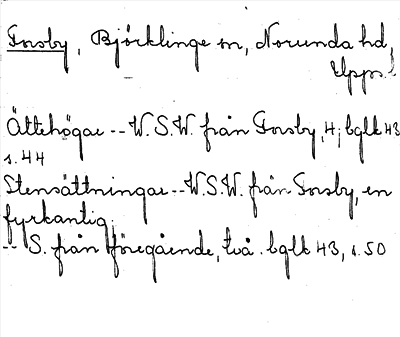 Forsby, Björklinge sn, Norunda hd,
Uppsl
Ättehögar -- W.S.W. från Forsby, 4; bglk 43
s. 44
Stensättningar -- W.S.W. från Forsby, en
fyrkantig;
-- S. från föregående, två. bglk 43, s. 50